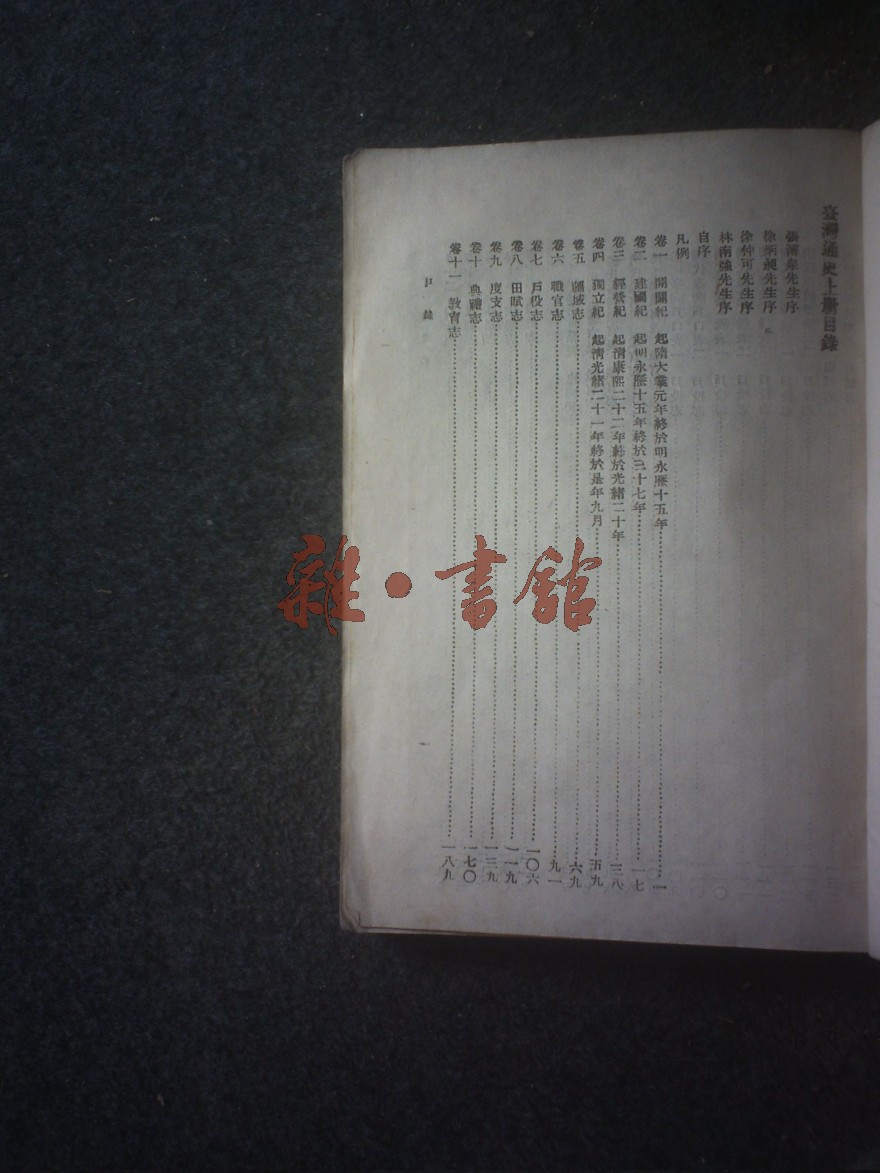 臺灣通史上册目錄
張溥泉先生序
徐炳昶先生序
徐仲可先生序
林南強先生序
自序
凡例
卷一 開闢紀 起隋大業元年終於明永曆十五年 一
卷二 建國紀 起明永曆十五年終於三十七年 一七
卷三 經營紀 起清康熙二十二年終於光緒二十年 三八
卷四 獨立紀 起清光緒二十一年終於是年九月 五九
卷五 疆域志 六九
卷六 職官志 九一
卷七 戶役志 一〇六
卷八 田賦志 一一九
卷九 度支志 一三九
卷十 典禮志 一七〇
卷十一 教育志 一八九
目錄
一
雜·書館